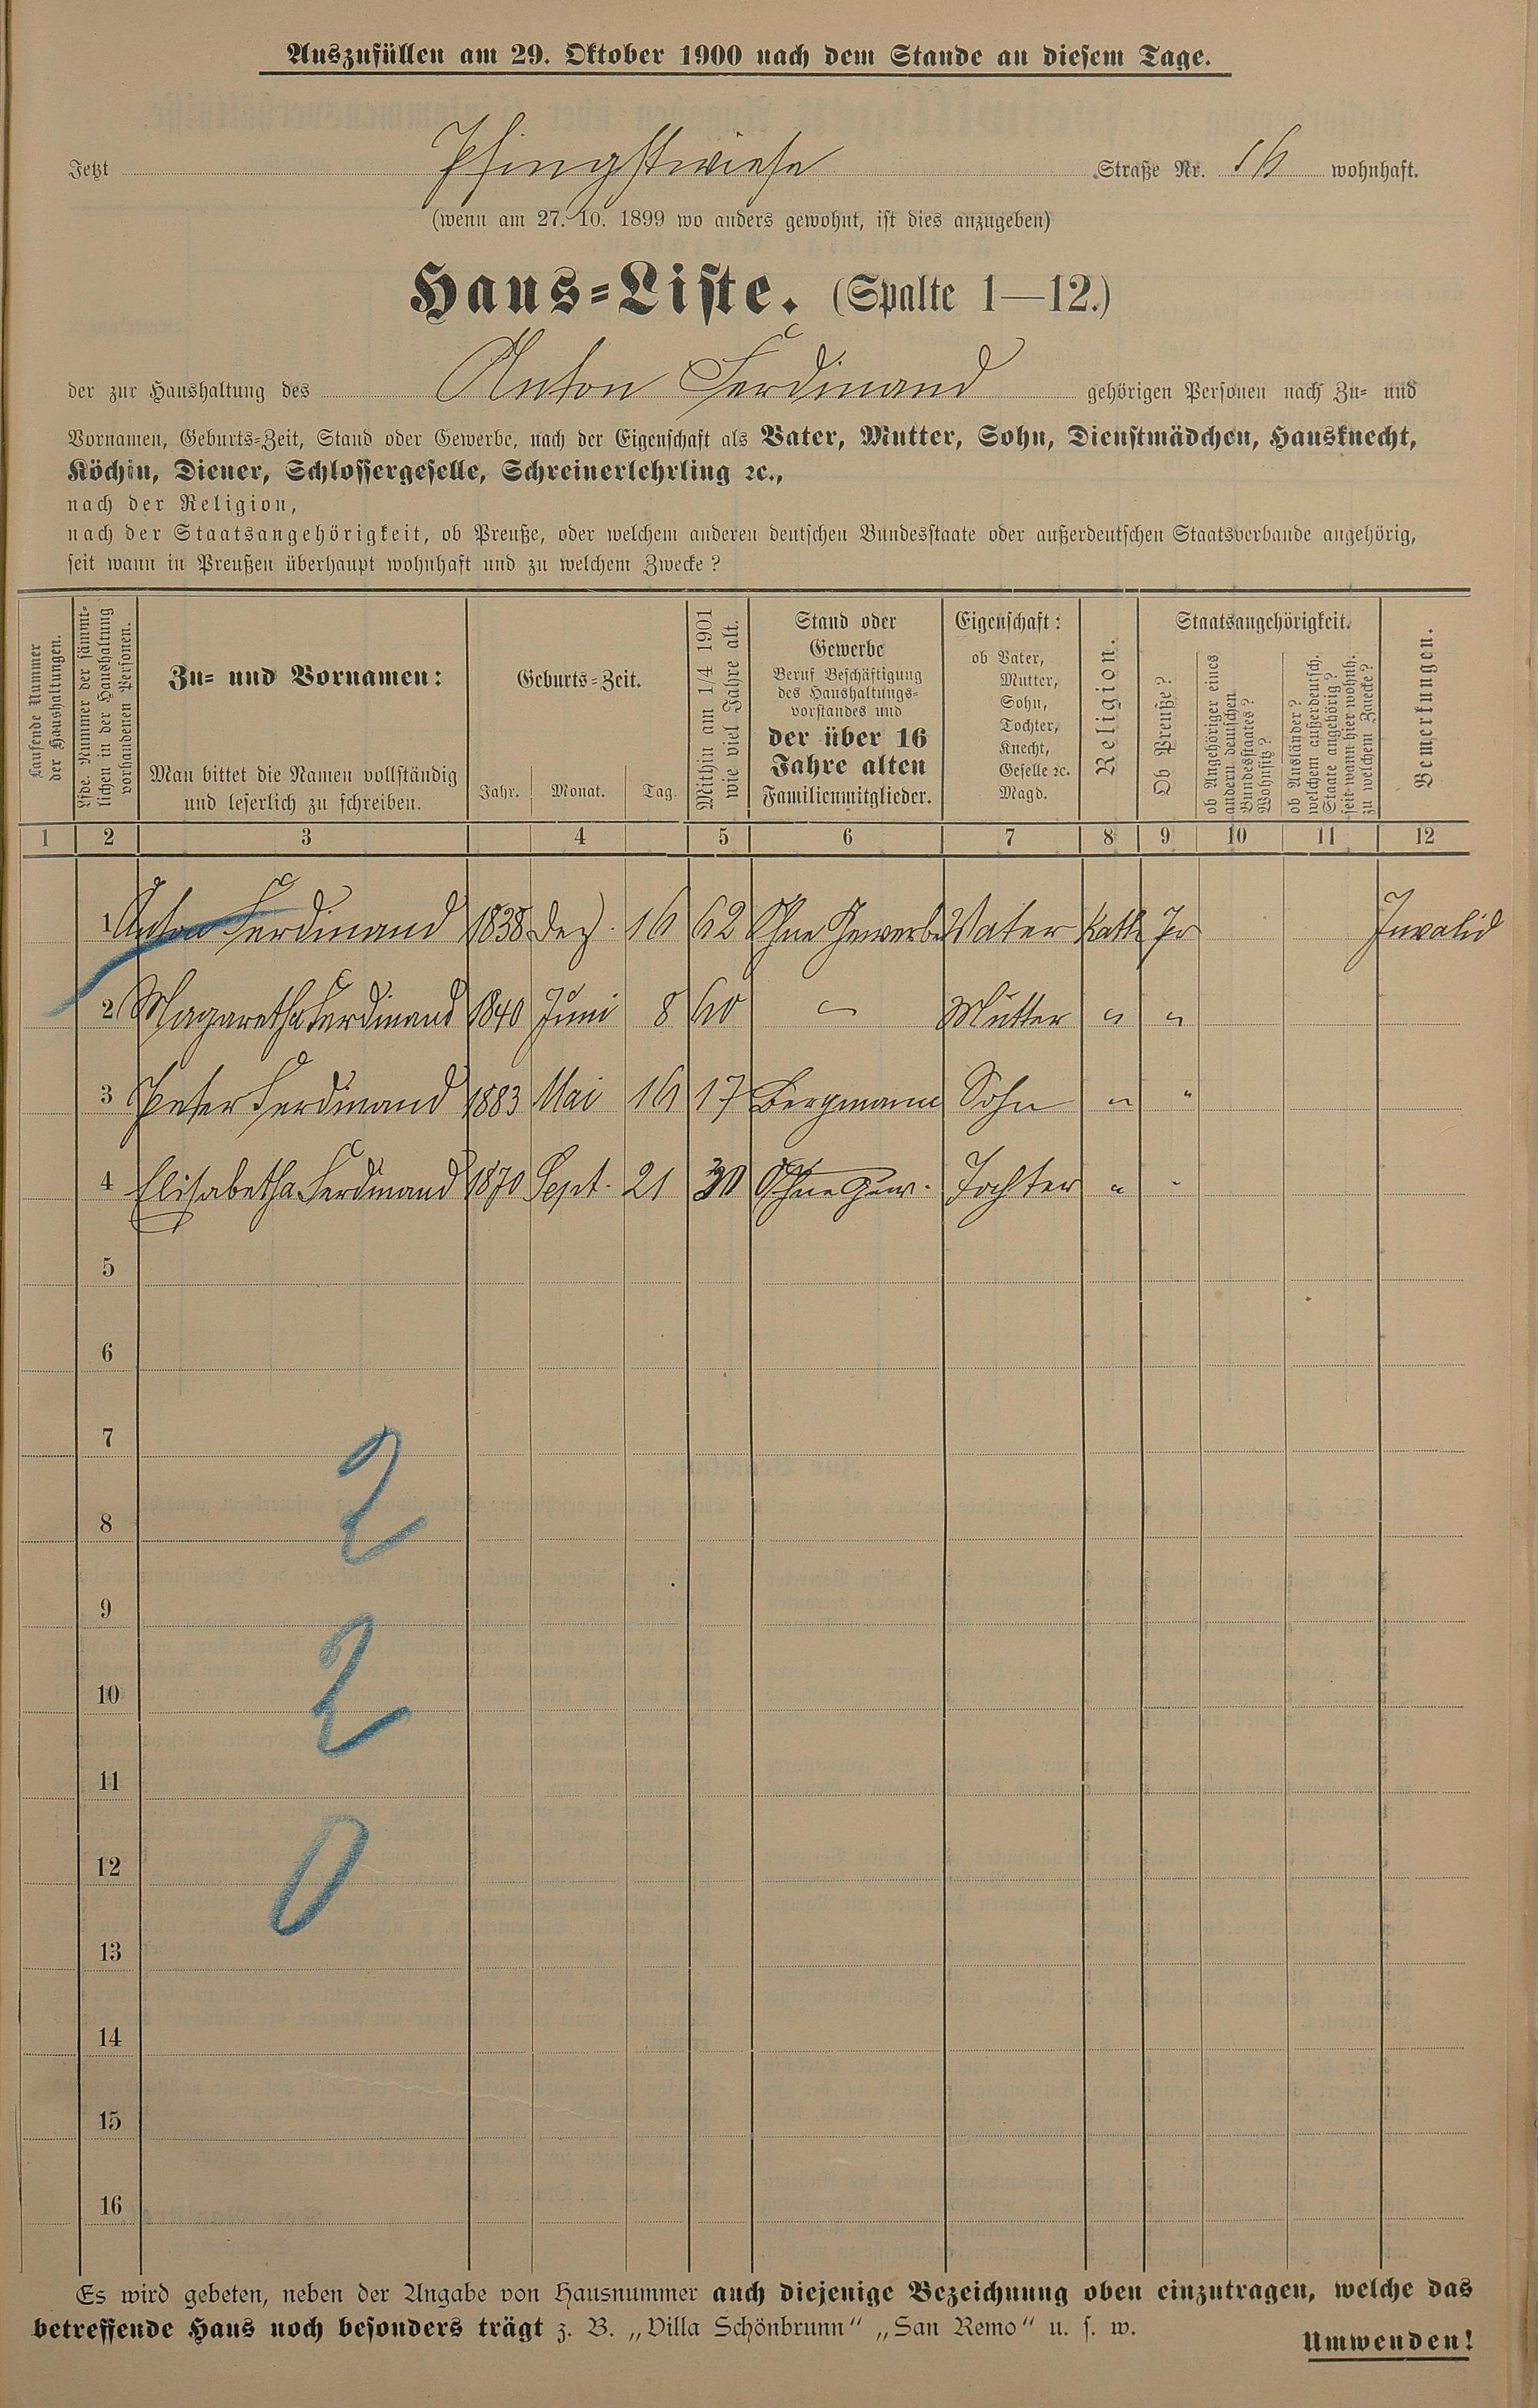 Auszufüllen am 29. Oktober 1900 nach dem Stande an diesem Tage.
Jetzt Pfingstwiese Straße Nr. 16 wohnhaft.
(wenn am 27. 10. 1899 wo anders gewohnt, ist dies anzugeben)
Haus-Liste. (Spalte 1—12.)
der zur Haushaltung des Anton Ferdinand gehörigen Personen nach Zu- und
Vornamen, Geburts-Zeit, Stand oder Gewerbe, nach der Eigenschaft als Vater, Mutter, Sohn, Dienstmädchen, Hausknecht,
Köchin, Diener, Schlossergeselle, Schreinerlehrling ꝛc.,
nach der Religion,
nach der Staatsangehörigkeit, ob Preuße, oder welchem anderen deutschen Bundesstaate oder außerdeutschen Staatsverbande angehörig,
seit wann in Preußen überhaupt wohnhaft und zu welchem Zwecke?
Laufende Nummer
der Haushaltungen.
Lfde. Nummer der sämmt-
lichen in der Haushaltung
vorhandenen Personen.
Zu- und Vornamen:
Man bittet die Namen vollständig
und leserlich zu schreiben.
Geburts-Zeit.
Jahr. Monat. Tag.
Mithin am 1/4 1901
wie viel Jahre alt.
Stand oder
Gewerbe
Beruf Beschäftigung
des Haushaltungs-
vorstandes und
der über 16
Jahre alten
Familienmitglieder.
Eigenschaft:
ob Vater,
Mutter,
Sohn,
Tochter,
Knecht,
Geselle ꝛc.
Magd.
Religion.
Staatsangehörigkeit.
Ob Preuße?
ob Angehöriger eines
andern deutschen
Bundesstaates?
Wohnsitz?
ob Ausländer?
welchem außerdeutsch.
Staate angehörig?
seit wann hier wohnh.
zu welchem Zwecke?
Bemerkungen.
1 2 3 4 5 6 7 8 9 10 11 12
1 Anton Ferdinand 1838 Dez. 16 62 Ohne Gewerbe Vater Kath Pr Invalid
2 Magaretha Ferdinand 1840 Juni 8 60 " Mutter " "
3 Peter Ferdinand 1883 Mai 16 17 Bergmann Sohn " "
4 Elisabetha Ferdinand 1870 Sept. 21 30 Ohne Gew. Tochter " "
5
6
7
2
8
9
10
2
11
12
0
13
14
15
16
Es wird gebeten, neben der Angabe von Hausnummer auch diejenige Bezeichnung oben einzutragen, welche das
betreffende Haus noch besonders trägt z. B. „Villa Schönbrunn“ „San Remo“ u. s. w.
Umwenden!